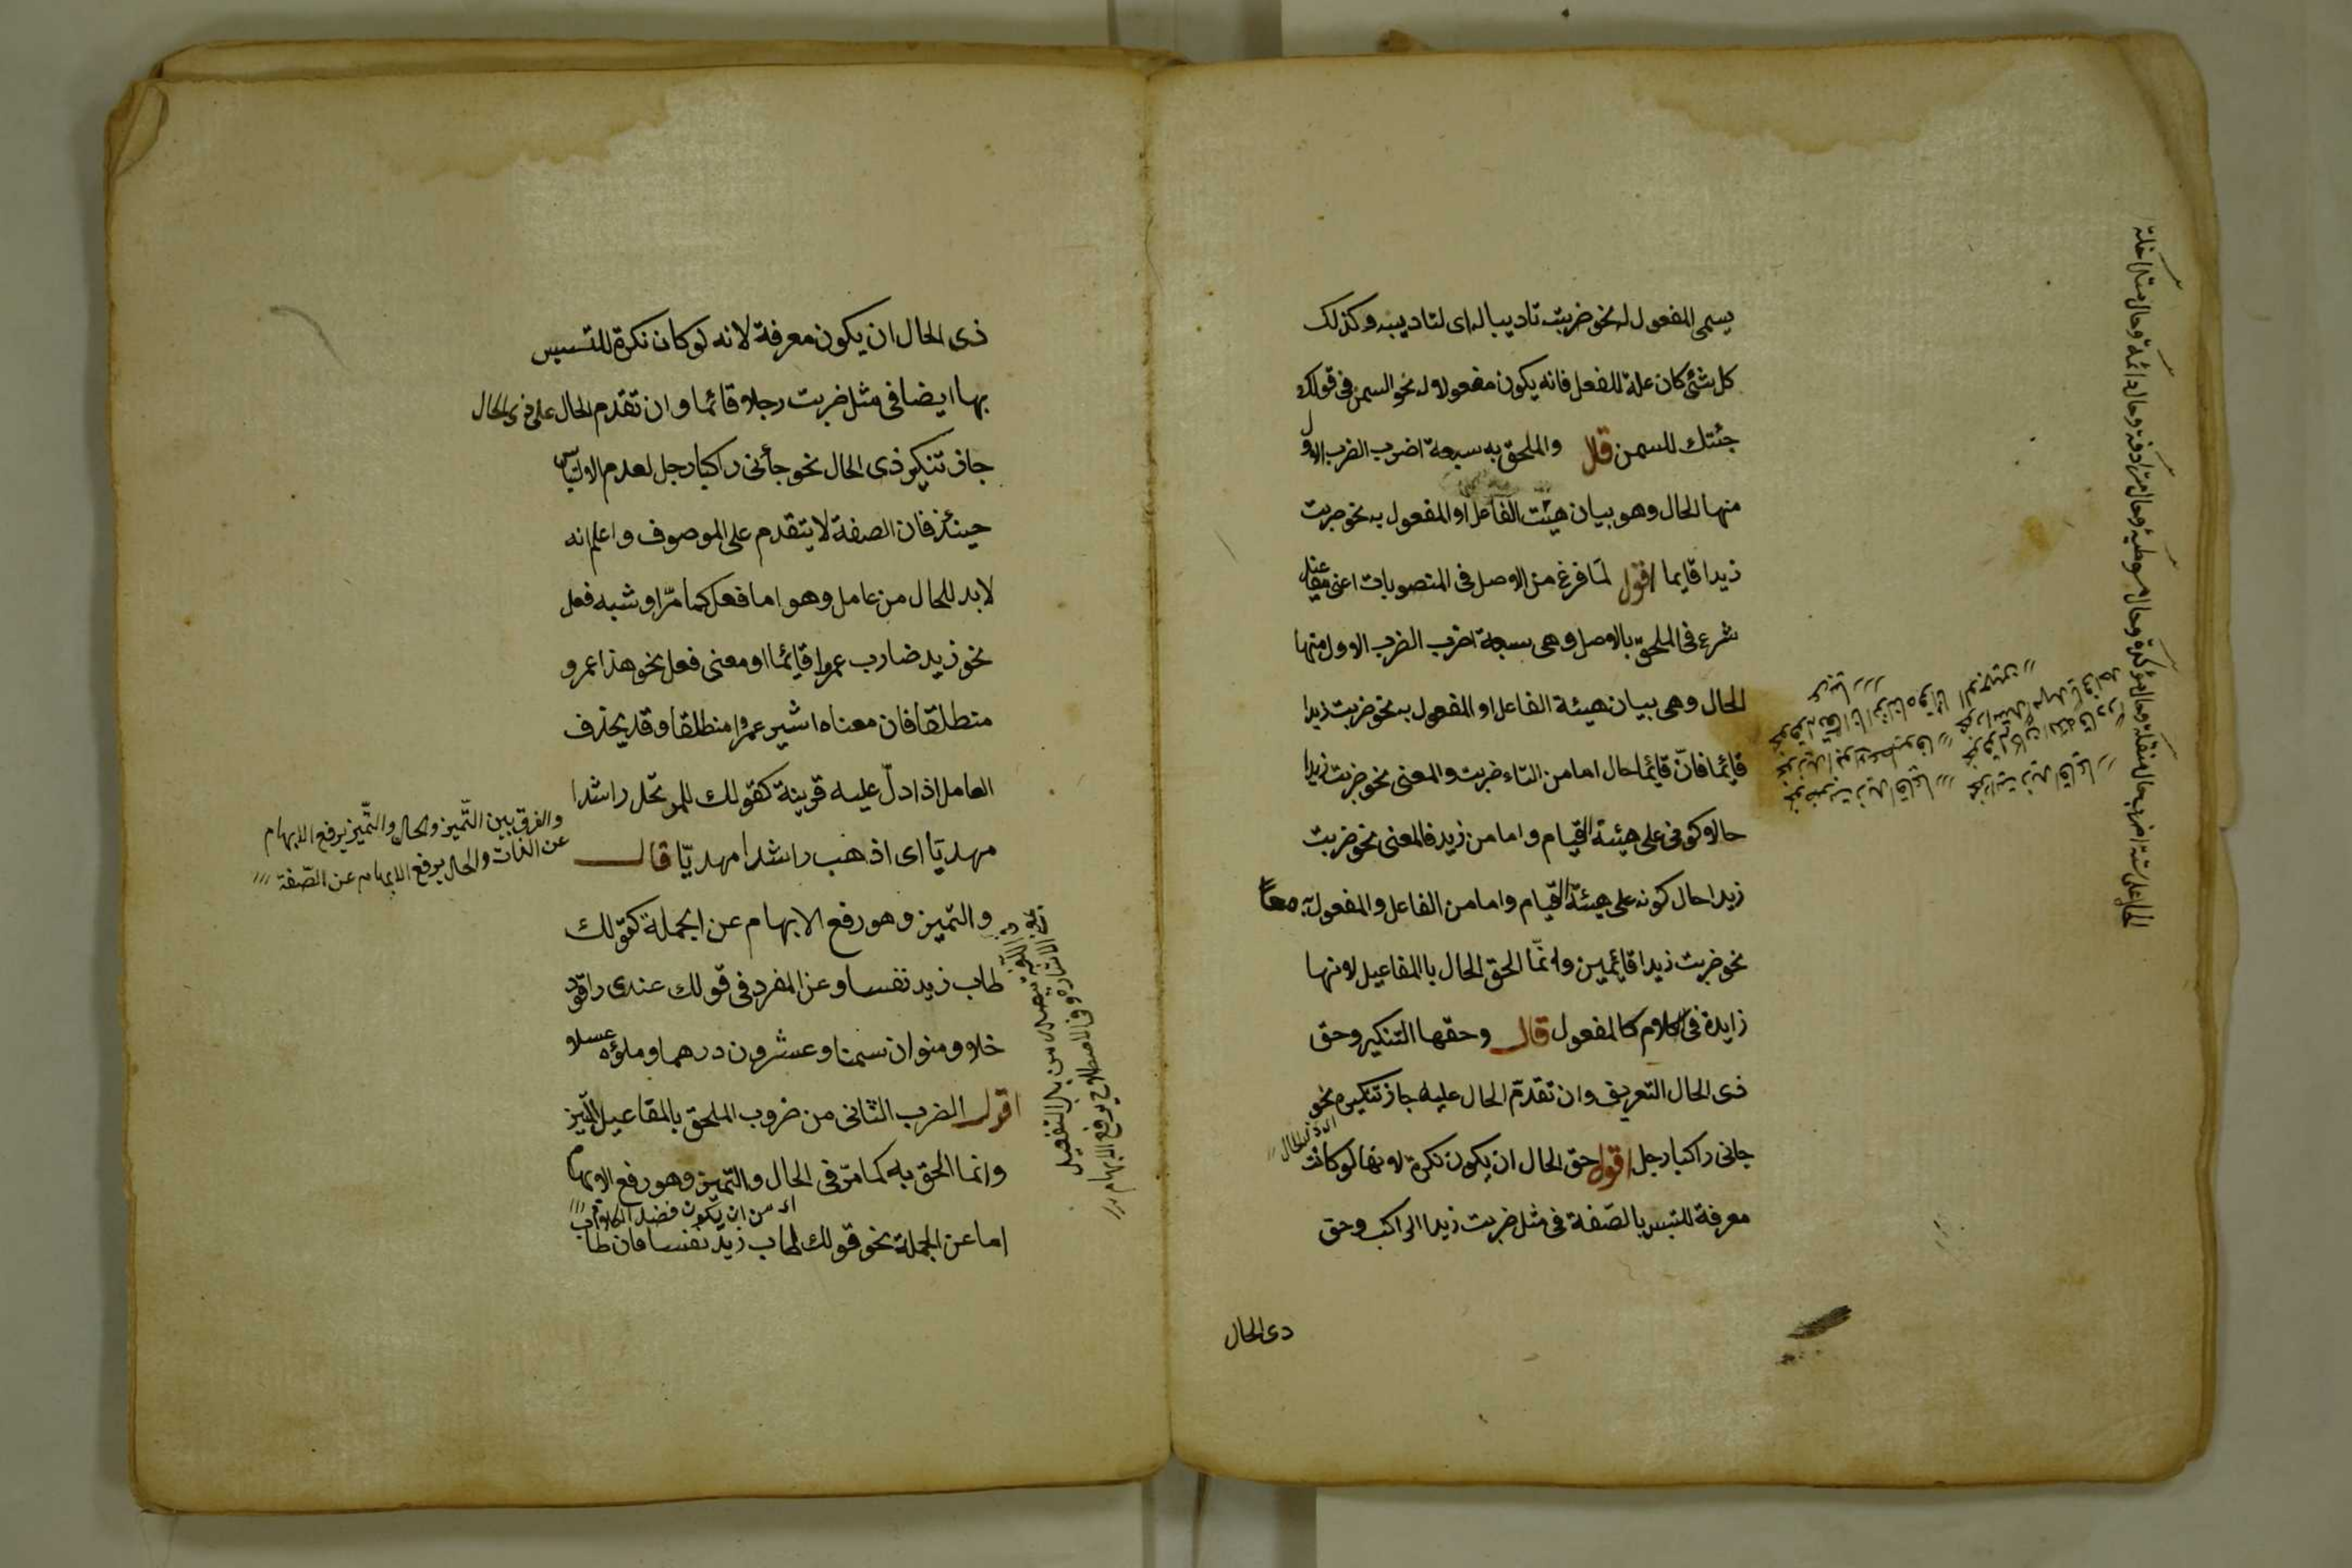 يسمى المفعول له نحو ضربت تاديبا له اى لتاديبه وكذلك
كل شئ كان علة للفعل فانه يكون مفعولا له نحو السمن فى قولك
جئتك للسمن قال والملحق به سبعة اضرب الضرب الاول
منها الحال وهو بيان هيئت الفاعل او المفعول به نحو ضربت
زيدا قايما اقول لما فرغ من الاصل فى المنصوبات اعنى مفاعيله
شرع فى الملحق بالاصل وهى سبعة اضرب الضرب الاول منها
الحال وهى بيان هيئة الفاعل او المفعول به نحو ضربت زيدا
قائما فانّ قائما حال اما من التاء ضربت والمعنى نحو ضربت زيدا
حالا كونى على هيئة القيام واما من زيد فالمعنى نحو ضربت
زيدا حال كونه على هيئة القيام واما من الفاعل والمفعول به معاً
نحو ضربت زيدا قائمين وانّما الحق الحال بالمفاعيل لانها
زايدة فى الكلام كالمفعول قال وحقها التنكير وحق
ذى الحال التعريف وان تقدّم الحال عليه جاز تنكيره نحو
جانى راكبا رجل اقول حق الحال ان يكون نكرة لانها لو كانت
اى ذى الحال
معرفة للتبس بالصّفة فى مثل ضربت زيدا الراكب وحق
دى الحال
الحال على ستة اضرب حال منتقلة وحال مؤكدة وحال موطئة وحال مترادفة وحال دائمة وحال متداخلة
ذى الحال ان يكون معرفة لانه لو كان نكرة للتبس
بها ايضا فى مثل ضربت رجلا قائما وان تقدم الحال على ذى الحال
جاز تنكير ذى الحال نحو جأنى راكبا رجل لعدم الالتباس
حينئذ فان الصفة لا يتقدم على الموصوف واعلم انه
لابد للحال من عامل وهو اما فعل كما مرّ او شبه فعل
نحو زيد ضارب عمرا قائما او معنى فعل نحو هذا عمرو
منطلقا فان معناه اشير عمرا منطلقا وقد يحذف
العامل اذا دلّ عليه قرينة كقولك للمرتحل راشدا
مهديّا اى اذهب راشدا مهديّا قال
والفرق بين التّميز والحال والتّميز يرفع الابهام
عن الذات والحال يرفع الابهام عن الصّفة
والتميز وهو رفع الابهام عن الجملة كقولك
طاب زيد نفسا وعن المفرد فى قولك عندى راقود
خلا ومنوان سمنا وعشرون درهما وملؤه عسلا
اقول الضرب الثانى من ضروب الملحق بالمفاعيل التّميز
وانما الحق به كما مرّ فى الحال والتّميز وهو رفع الابهام
اى من ان يكون فضلة الكلام
اما عن الجملة نحو قولك طاب زيد نفسا فان طاب